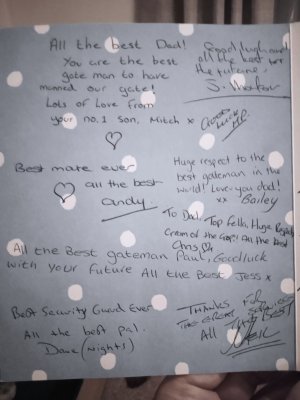 All the best Dad!
You are the best
gate man to have
manned our gate!
Lots of Love from
your no. 1 Son, Mitch x
Good
all the best for
the future,
S.
Good
luck
Best mate ever
all the best
andy
Huge respect to the
best gateman in the
world! Love you dad!
xx Bailey
To Dad, Top fella, Huge
Cream of the Crop! All the best
Chris
All the Best gateman Paul, Goodluck
with your future All the Best Jess x
Best Security Guard Ever
All the best pal.
Dave (Nights)
THANKS FOR
THE GREAT
All THE BEST
NEIL